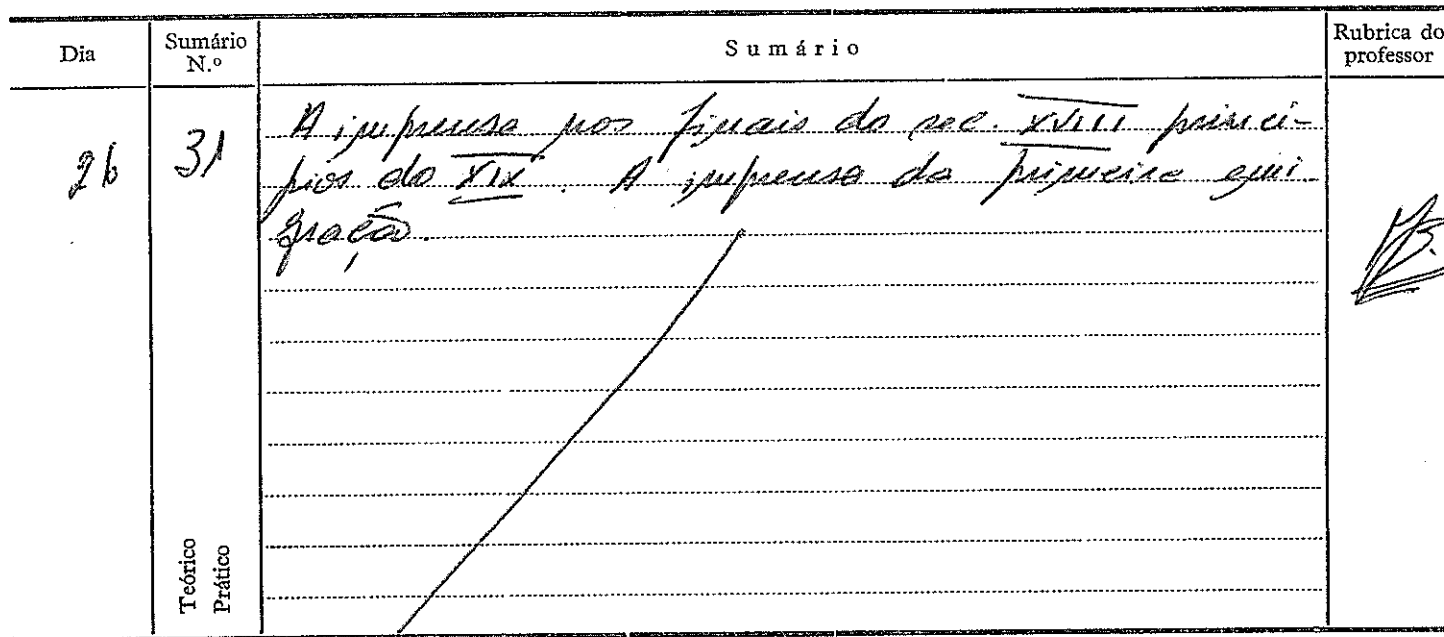 Dia
Sumário
N.º
Sumário
Rubrica do
professor
26
31
A imprensa nos finais do sec. XVIII princí-
pios do XIX. A imprensa da primeira emi-
gração.
Teórico
Prático